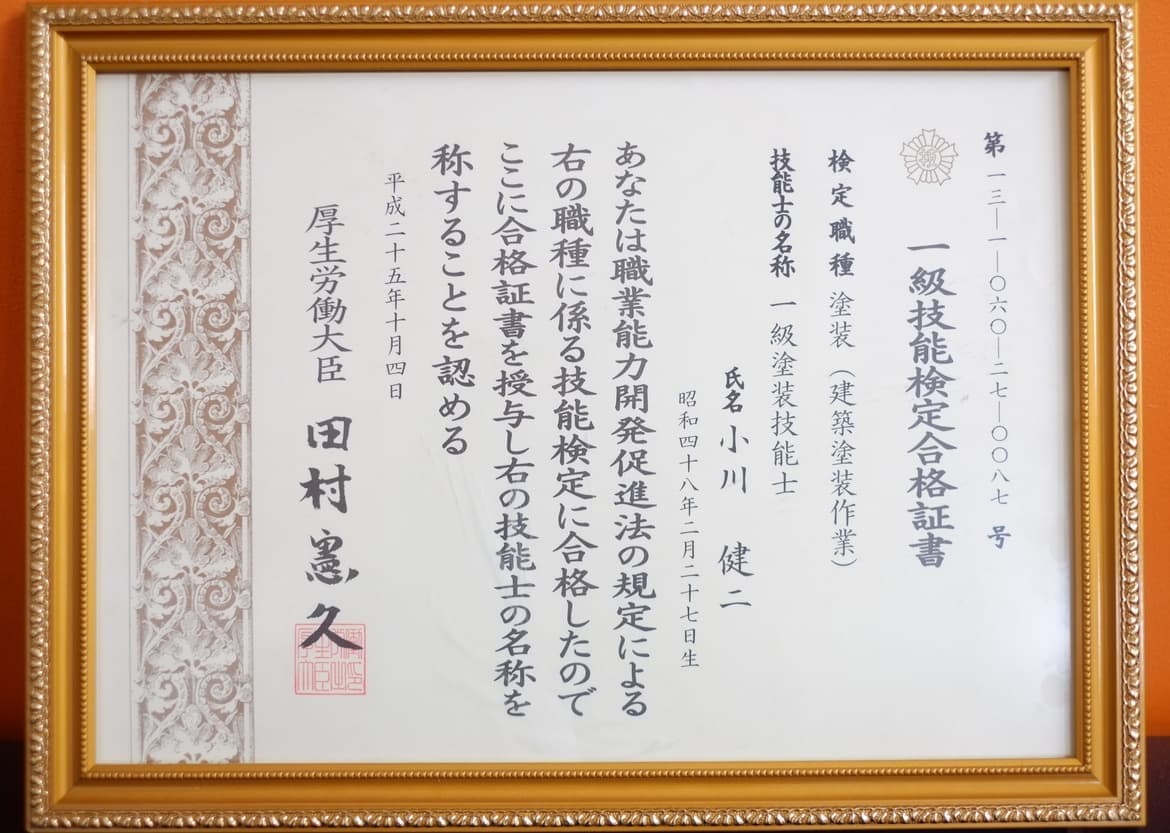 第一三―一―〇六〇―二七―〇〇八七号
一級技能検定合格証書
検定職種 塗装（建築塗装作業）
技能士の名称 一級塗装技能士
氏名 小川 健二
昭和四十八年二月二十七日生
あなたは職業能力開発促進法の規定による
右の職種に係る技能検定に合格したので
ここに合格証書を授与し右の技能士の名称を
称することを認める
平成二十五年十月四日
厚生労働大臣 田村憲久